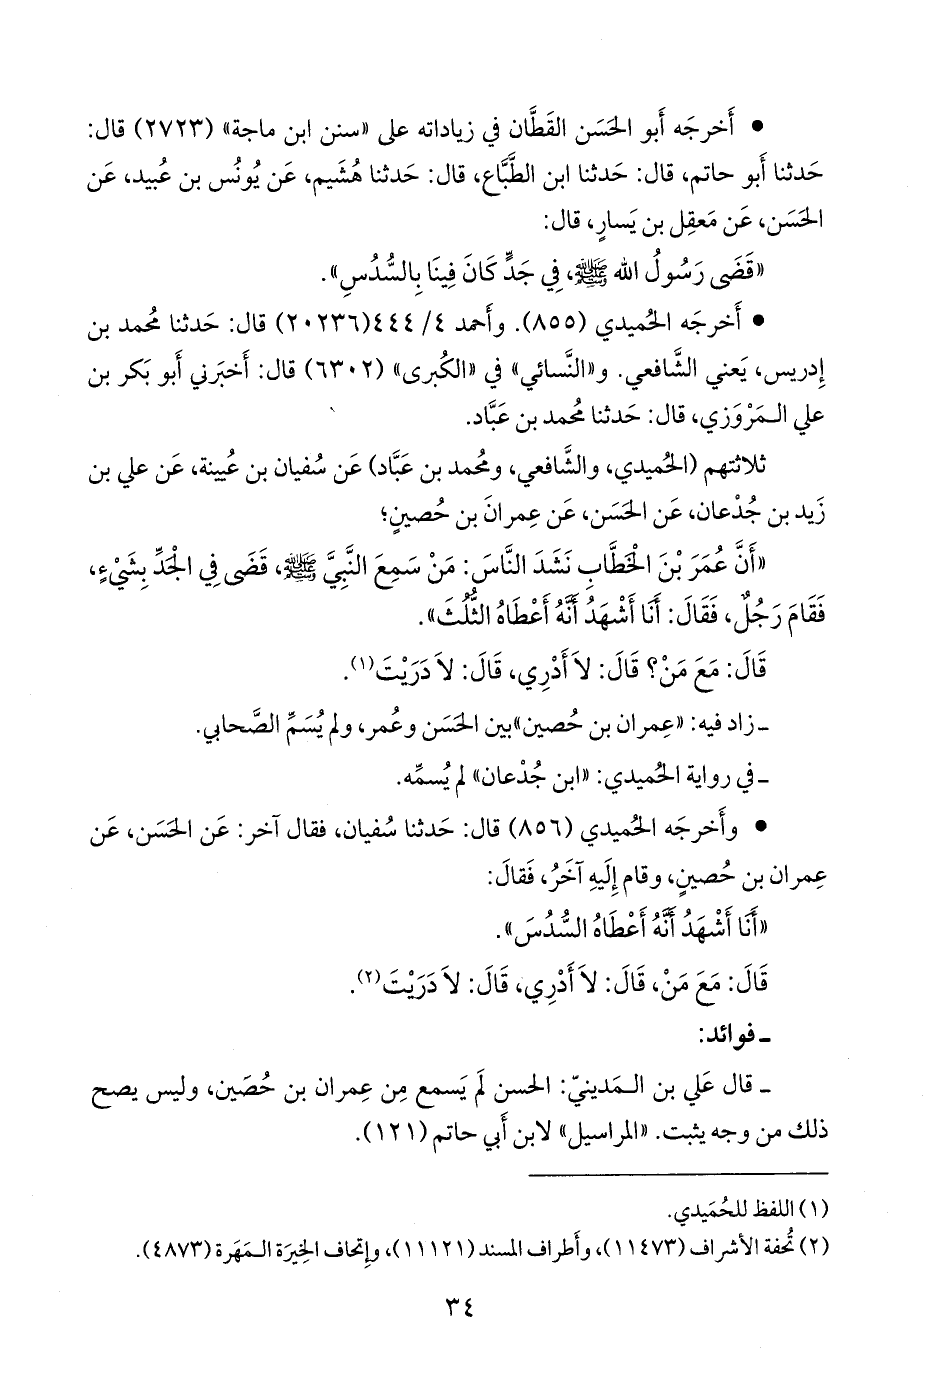 • أَخرجَه أَبو الحَسَن القَطَّان في زياداته على «سنن ابن ماجة» (٢٧٢٣) قال:
حَدثنا أَبو حاتم، قال: حَدثنا ابن الطَّبَّاع، قال: حَدثنا هُشَيم، عَن يُونُس بن عُبيد، عَن
الحَسَن، عَن مَعقِل بن يَسارٍ، قال:
«قَضَى رَسُولُ الله ﷺ، فِي جَدٍّ كَانَ فِينَا بِالسُّدُسِ».
• أَخرجَه الحُميدي (٨٥٥). وأَحمد ٤/ ٤٤٤(٢٠٢٣٦) قال: حَدثنا مُحمد بن
إِدريس، يَعني الشَّافعي. و«النَّسائي» في «الكُبرى» (٦٣٠٢) قال: أَخبَرني أَبو بَكر بن
علي الـمَرْوَزي، قال: حَدثنا مُحمد بن عَبَّاد.
ثلاثتهم (الحُميدي، والشَّافعي، ومُحمد بن عَبَّاد) عَن سُفيان بن عُيينة، عَن علي بن
زَيد بن جُدْعان، عَن الحَسَن، عَن عِمرانَ بن حُصينٍ؛
«أَنَّ عُمَرَ بْنَ الْخَطَّابِ نَشَدَ النَّاسَ: مَنْ سَمِعَ النَّبِيَّ ﷺ، قَضَى فِي الْجَدِّ بِشَيْءٍ،
فَقَامَ رَجُلٌ، فَقَالَ: أَنَا أَشْهَدُ أَنَّهُ أَعْطَاهُ الثُّلُثَ».
قَالَ: مَعَ مَنْ؟ قَالَ: لاَ أَدْرِي، قَالَ: لاَ دَرَيْتَ(١).
ـ زاد فيه: «عِمران بن حُصين»بين الحَسَن وعُمر، ولم يُسَمِّ الصَّحابي.
ـ في رواية الحُميدي: «ابن جُدْعان» لم يُسمِّه.
• وأَخرجَه الحُميدي (٨٥٦) قال: حَدثنا سُفيان، فقال آخر: عَن الحَسَن، عَن
عِمران بن حُصينٍ، وقام إِلَيهِ آخَرُ، فَقالَ:
«أَنَا أَشْهَدُ أَنَّهُ أَعْطَاهُ السُّدُسَ».
قَالَ: مَعَ مَنْ، قَالَ: لاَ أَدْرِي، قَالَ: لاَ دَرَيْتَ(٢).
ـ فوائد:
ـ قال عَلي بن الـمَدينيّ: الحسن لَم يَسمع مِن عِمران بن حُصَين، وليس يصح
ذلك من وجه يثبت. «المراسيل» لابن أَبي حاتم (١٢١).
(١) اللفظ للحُمَيدي.
(٢) تُحفة الأشراف (١١٤٧٣)، وأطراف المسند (١١١٢١)، وإتحاف الخِيرَة الـمَهَرة (٤٨٧٣).
٣٤